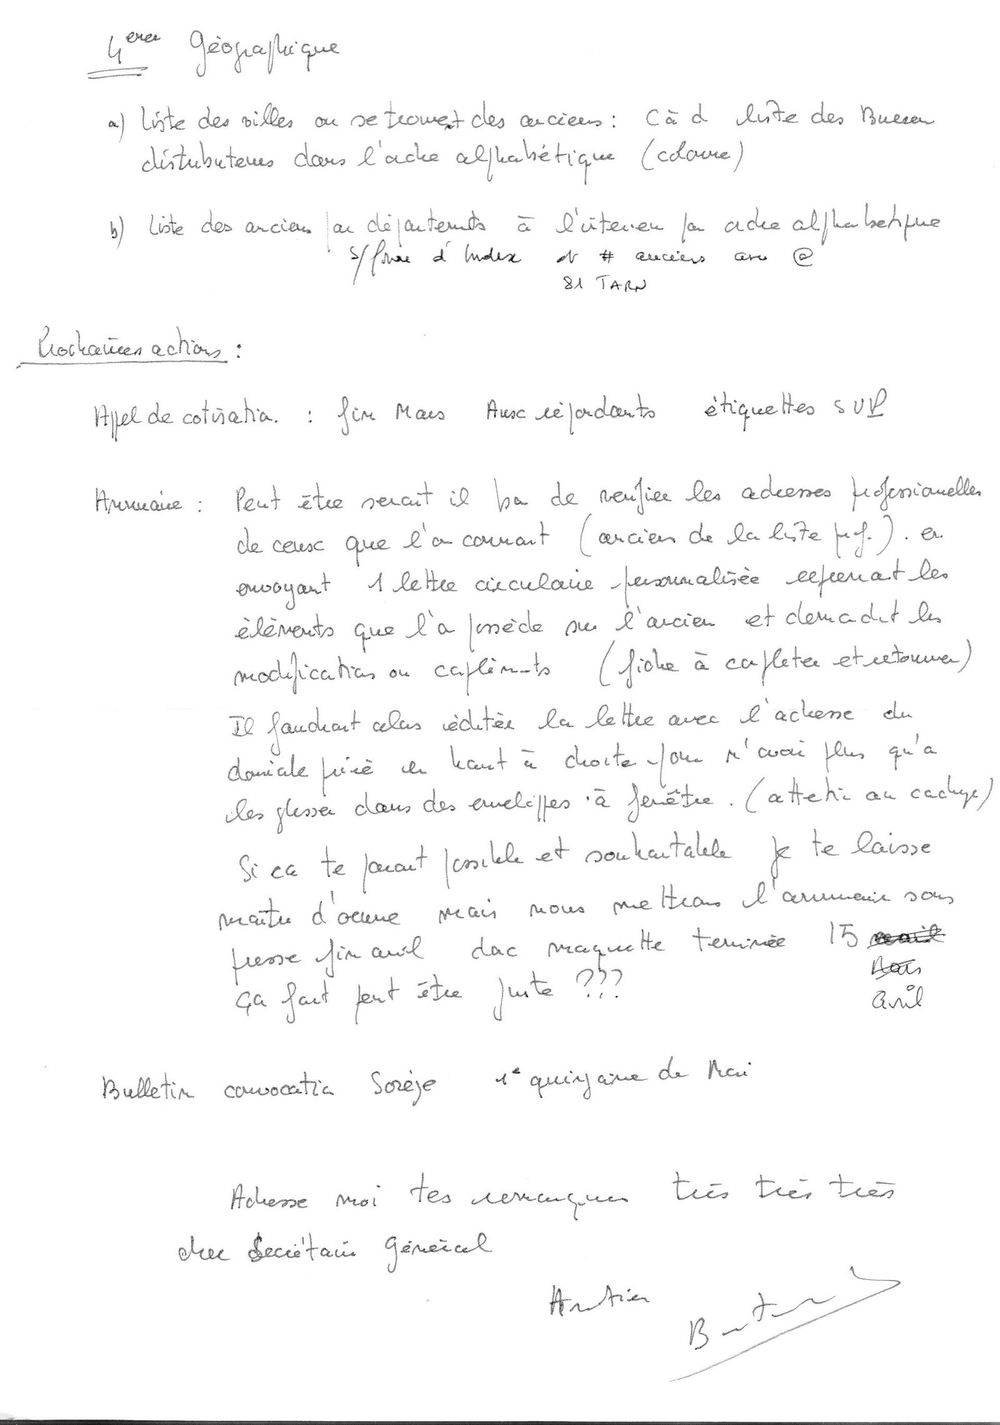 4ème Géographique
a) Liste des villes ou se trouvent des anciens : C à d liste des Bureau
distributeurs dans l'ordre alphabétique (colonne)
b) Liste des anciens par départements à l'intérieur par ordre alphabetique
s/forme d'Index # anciens @
81 TARN
Prochaines actions :
Appel de cotisation : fin Mars Aux répondants étiquettes SVP
Annuaire : Peut être serait il bon de verifier les adresses professionnelles
de ceux que l'on connait (anciens de la liste prof.). en
envoyant 1 lettre circulaire personnalisée reprenant les
éléments que l'on possède sur l'ancien et demandant les
modifications ou compléments (fiche à completer et retourner)
Il faudrait alors éditée la lettre avec l'adresse du
domicile privé en haut à droite pour n'avoir plus qu'a
les glisser dans des enveloppes à fenêtre. (attention au cadrage)
Si ca te parait possible et souhaitable je te laisse
maitre d'œuvre mais nous mettrons l'annuaire sous
presse fin avril donc maquette terminée 15
avril
ça fait peut être juste ???
Bulletin convocation Sorèze 1e quinzaine de Mai
Adresse moi tes remarques très très très
cher Secrétaire Général